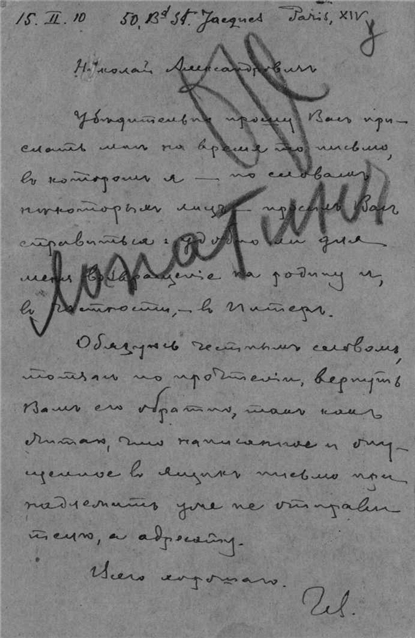 15. II. 10 50, Bd St. Jacques Paris, XIV
Николай Александровичъ
Убѣдительно прошу Васъ при-
слать мнѣ на время то письмо,
въ которомъ я — по словамъ
нѣкоторыхъ лицъ — просилъ Васъ
справиться: удобно ли для
меня возвращеніе на родину и,
въ частности, — въ Питеръ.
Обязуюсь честнымъ словомъ,
тотчасъ по прочтеніи, вернуть
Вамъ его обратно, такъ какъ
считаю, что написанное и опу-
щенное въ ящикъ письмо при-
надлежитъ уже не отправи-
телю, а адресату.
Всего хорошаго.
Лопатинъ